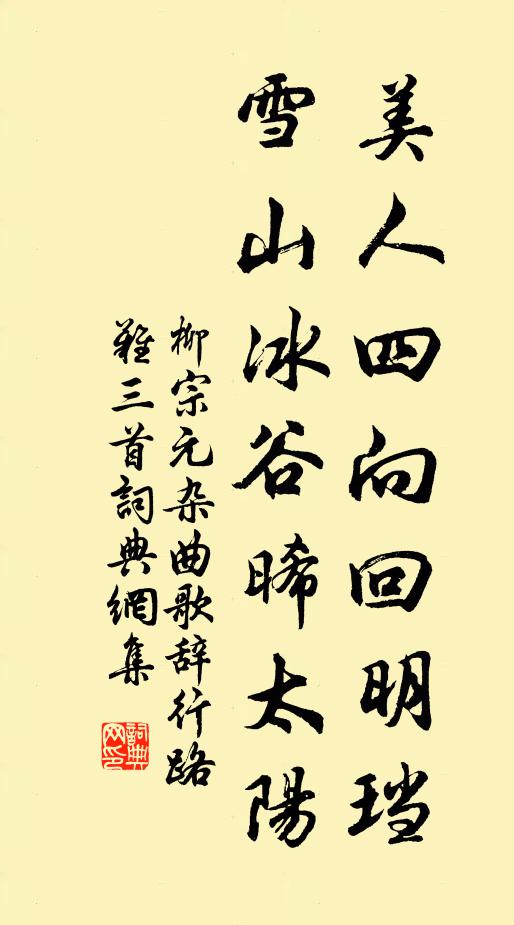 美人四向回明珰
雪山冰谷晞太陽
柳宗元杂曲歌辞行路
難三首詞典網集
詞典网印